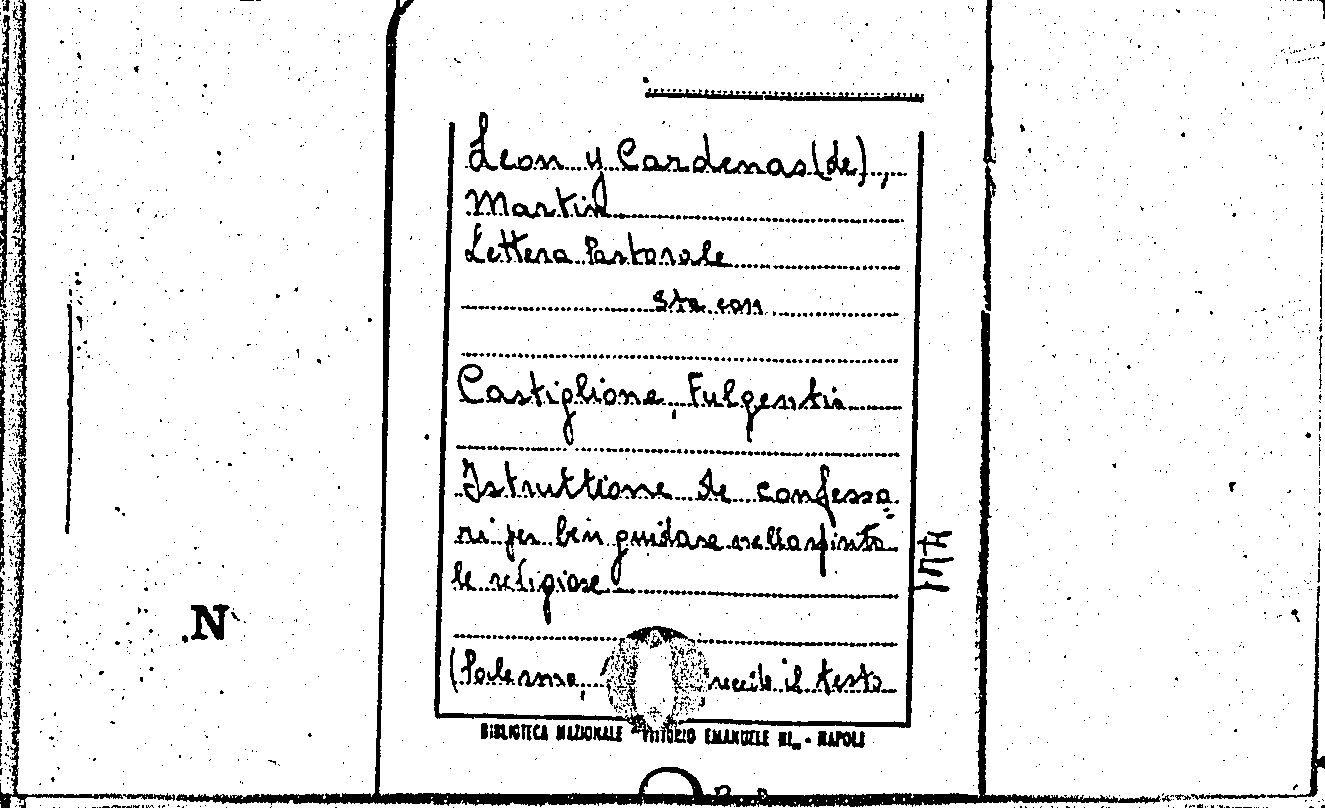 Leon y Cardenas (de),
Martin
Lettera Pastorale
sta con
Castiglione, Fulgentia
Istruttione de confessa=
ri per ben guidare nello spirito
le religiose
(Palermo, il testo
BIBLIOTECA NAZIONALE "VITTORIO EMANUELE III" - NAPOLI
N